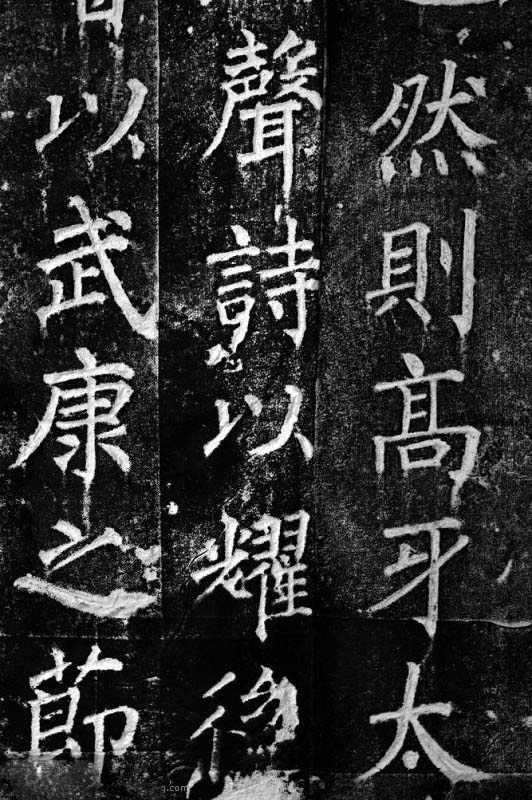 然則髙牙太
聲詩以耀後
以武康之節